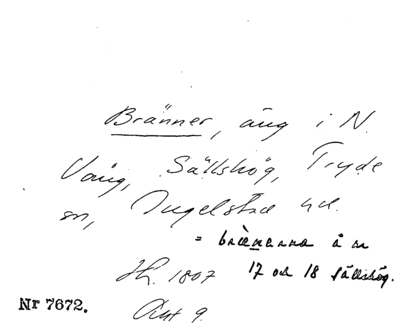 Bränner, äng i N.
Vång, Sällshög, Tryde
sn, Ingelstad hd.
= brännarna å nr
Sk. 1807 17 och 18 Sällshög.
Nr 7672. Akt 9.